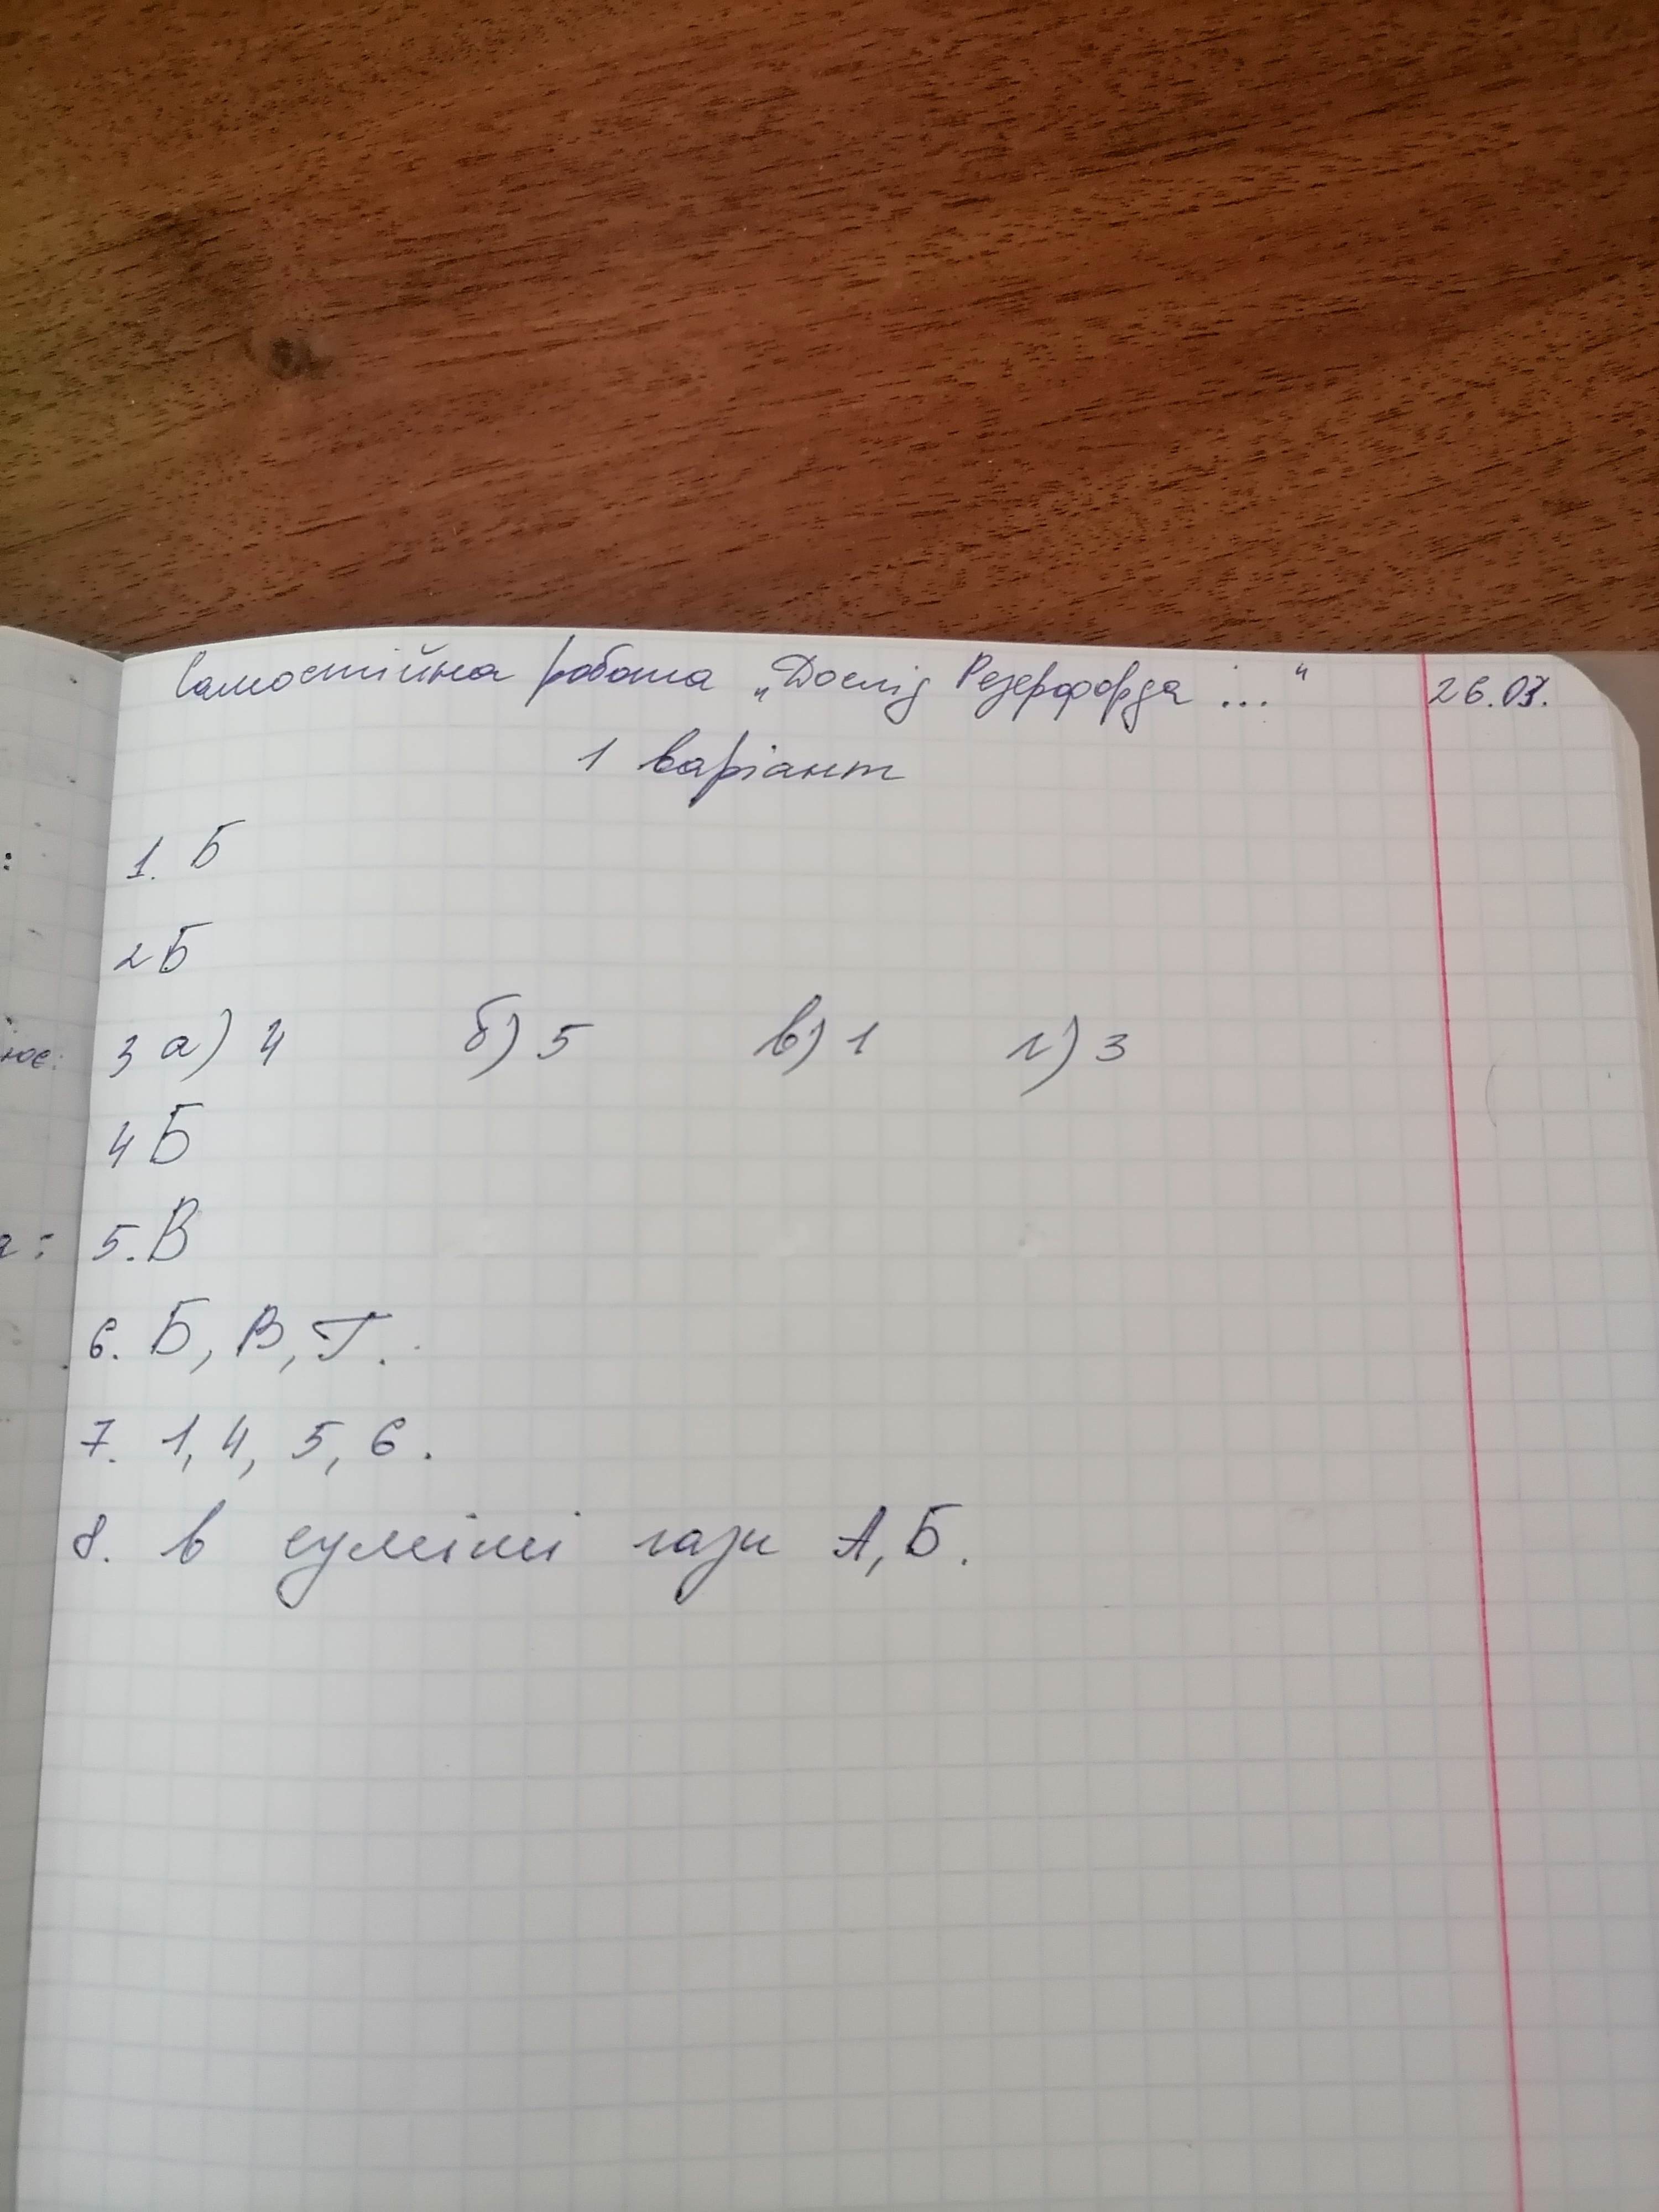 Самостійна робота „Дослід Резерфорда ..." 26.03.
1 варіант
:
1. Б
2 Б
3 а) 4 б) 5 в) 1 г) 3
ює:
4 Б
а: 5. В
6. Б, В, Г.
7. 1, 4, 5, 6.
8. в суміші гази А, Б.